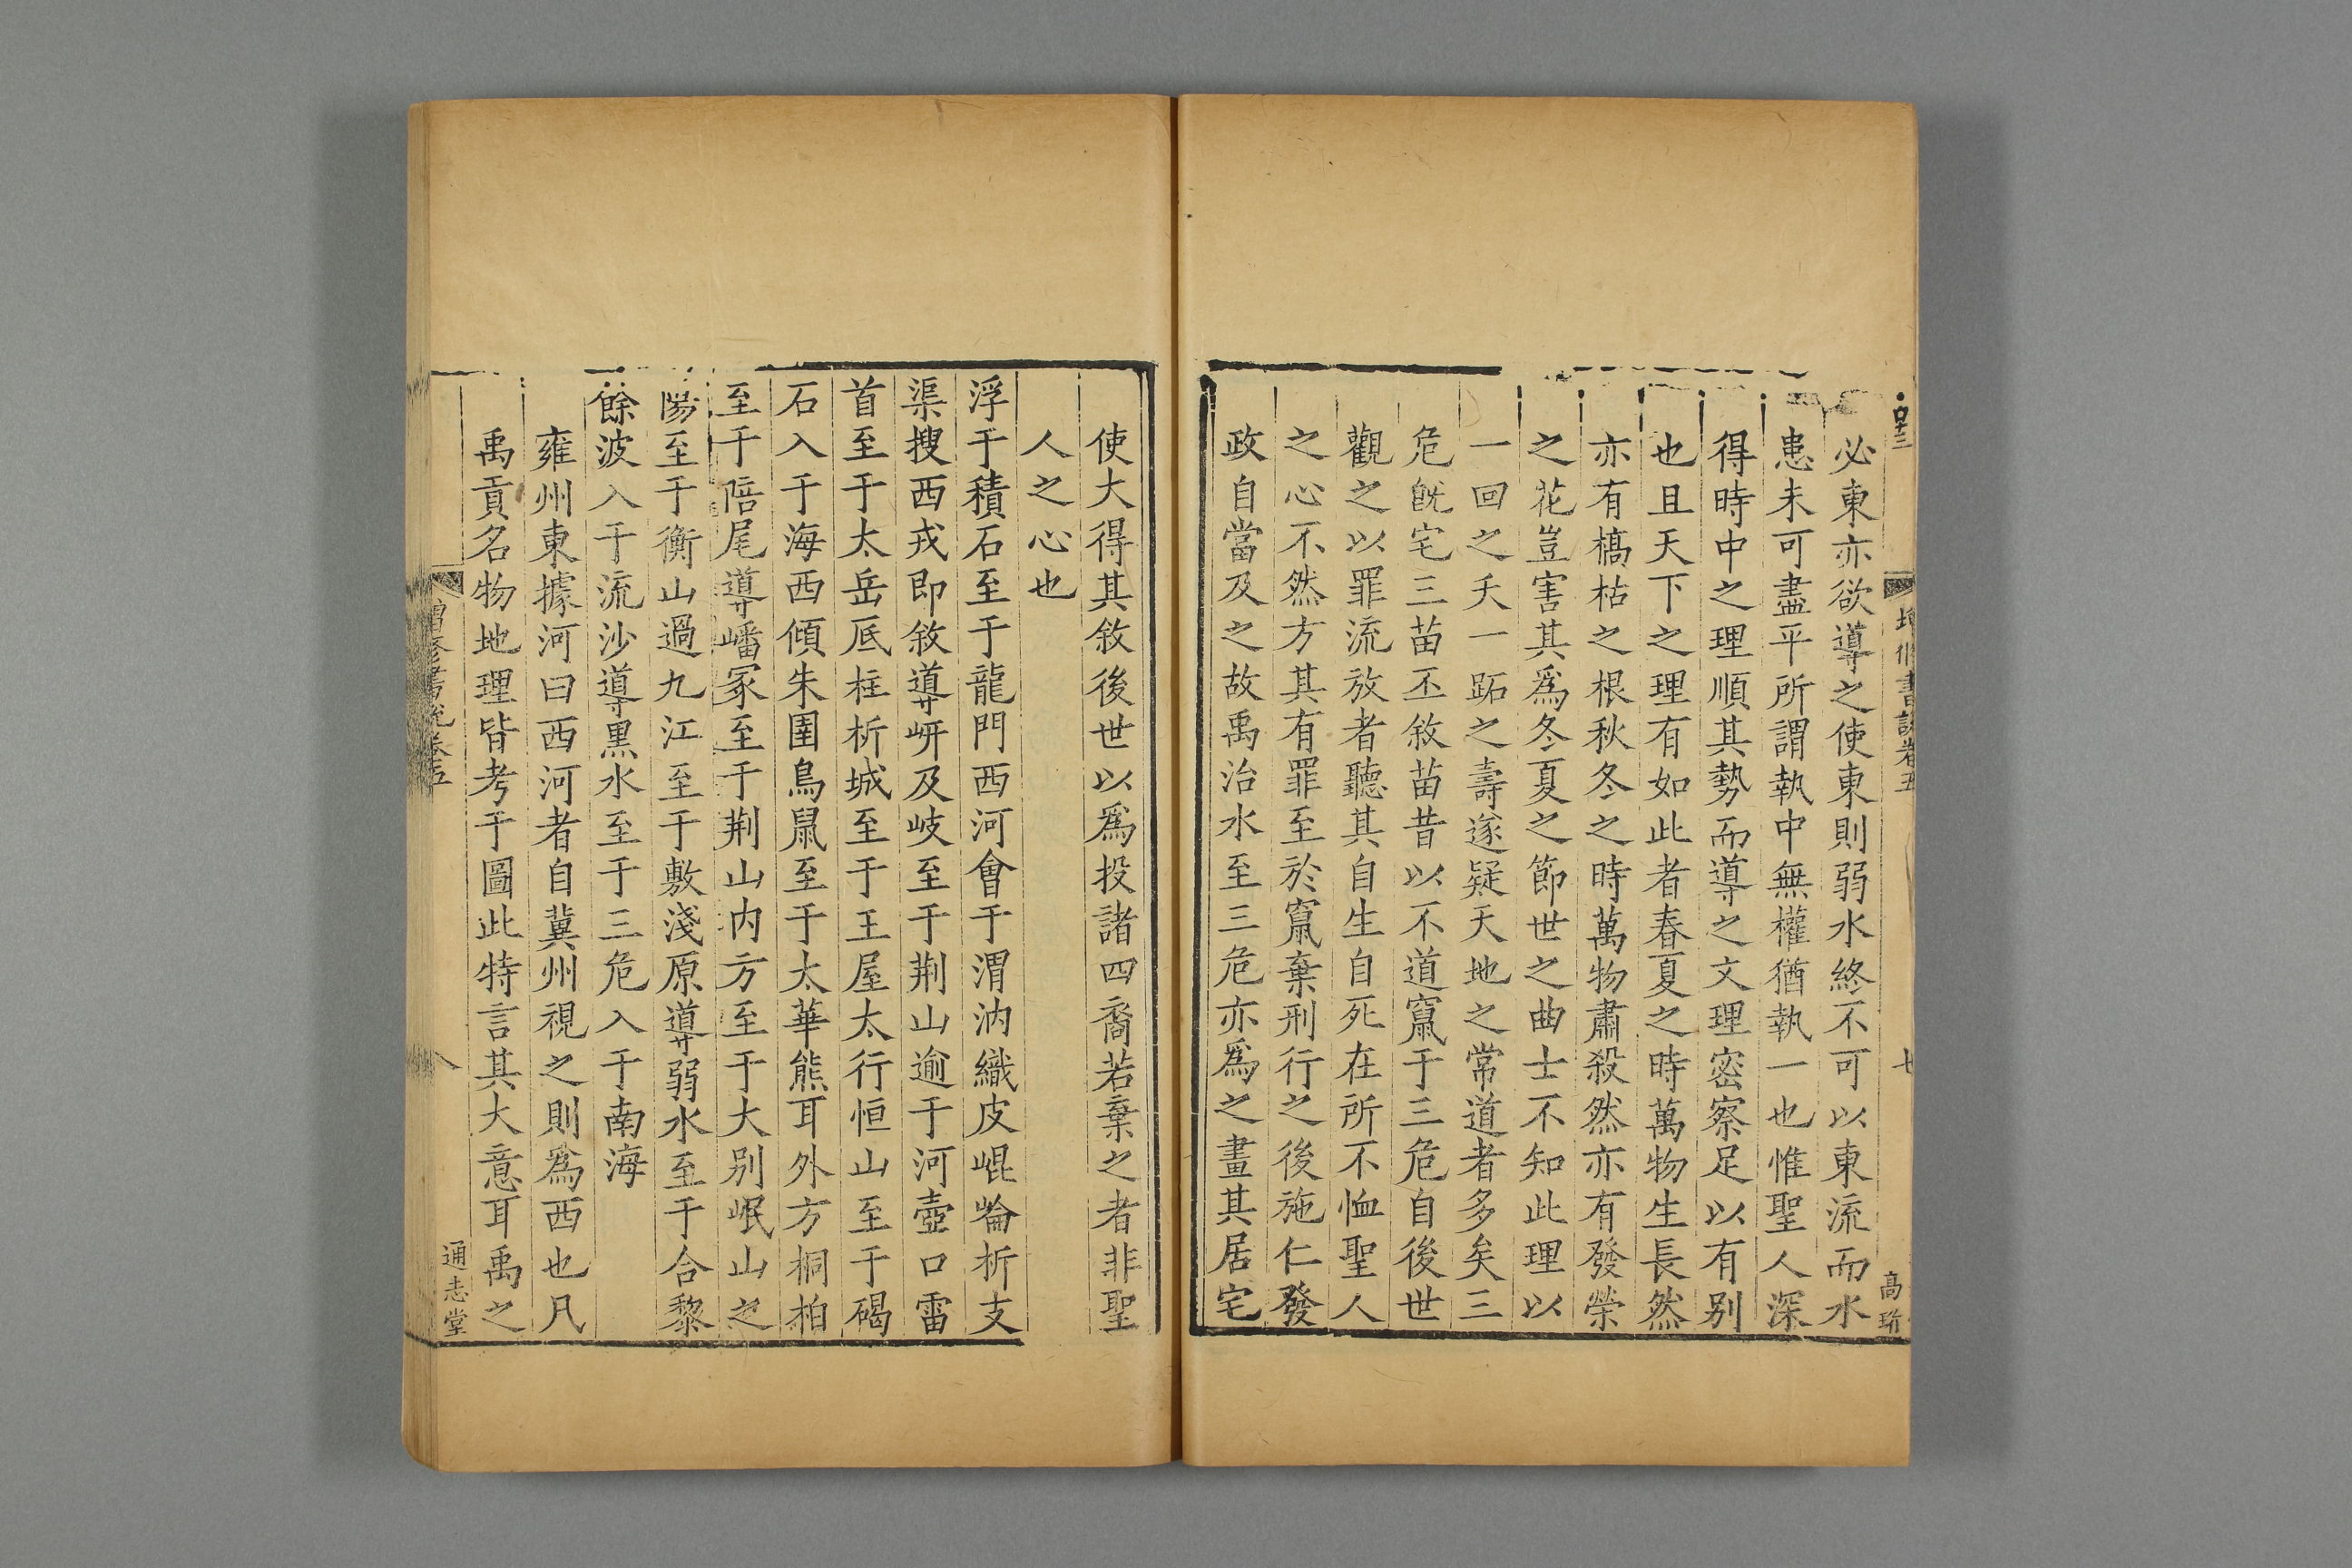 必東亦欲導之使東則弱水終不可以東流而水
患未可盡平所謂執中無權猶執一也惟聖人深
得時中之理順其勢而導之文理密察足以有别
也且天下之理有如此者春夏之時萬物生長然
亦有槁枯之根秋冬之時萬物肅殺然亦有發榮
之花豈害其爲冬夏之節世之曲士不知此理以
一回之夭一跖之壽遂疑天地之常道者多矣三
危旣宅三苗丕敘苗昔以不道竄于三危自後世
觀之以罪流放者聽其自生自死在所不恤聖人
之心不然方其有罪至於竄棄刑行之後施仁發
政自當及之故禹治水至三危亦爲之畫其居宅
使大得其敘後世以爲投諸四裔若棄之者非聖
人之心也
浮于積石至于龍門西河會于渭汭織皮崐崘析支
渠搜西戎即敘導岍及岐至于荆山逾于河壺口雷
首至于太岳厎柱析城至于王屋太行恒山至于碣
石入于海西傾朱圉鳥鼠至于太華熊耳外方桐柏
至于陪尾導嶓冢至于荆山内方至于大别岷山之
陽至于衡山過九江至于敷淺原導弱水至于合黎
餘波入于流沙導黑水至于三危入于南海
雍州東據河曰西河者自冀州視之則爲西也凡
禹貢名物地理皆考于圖此特言其大意耳禹之
增修書說卷五
八
通志堂